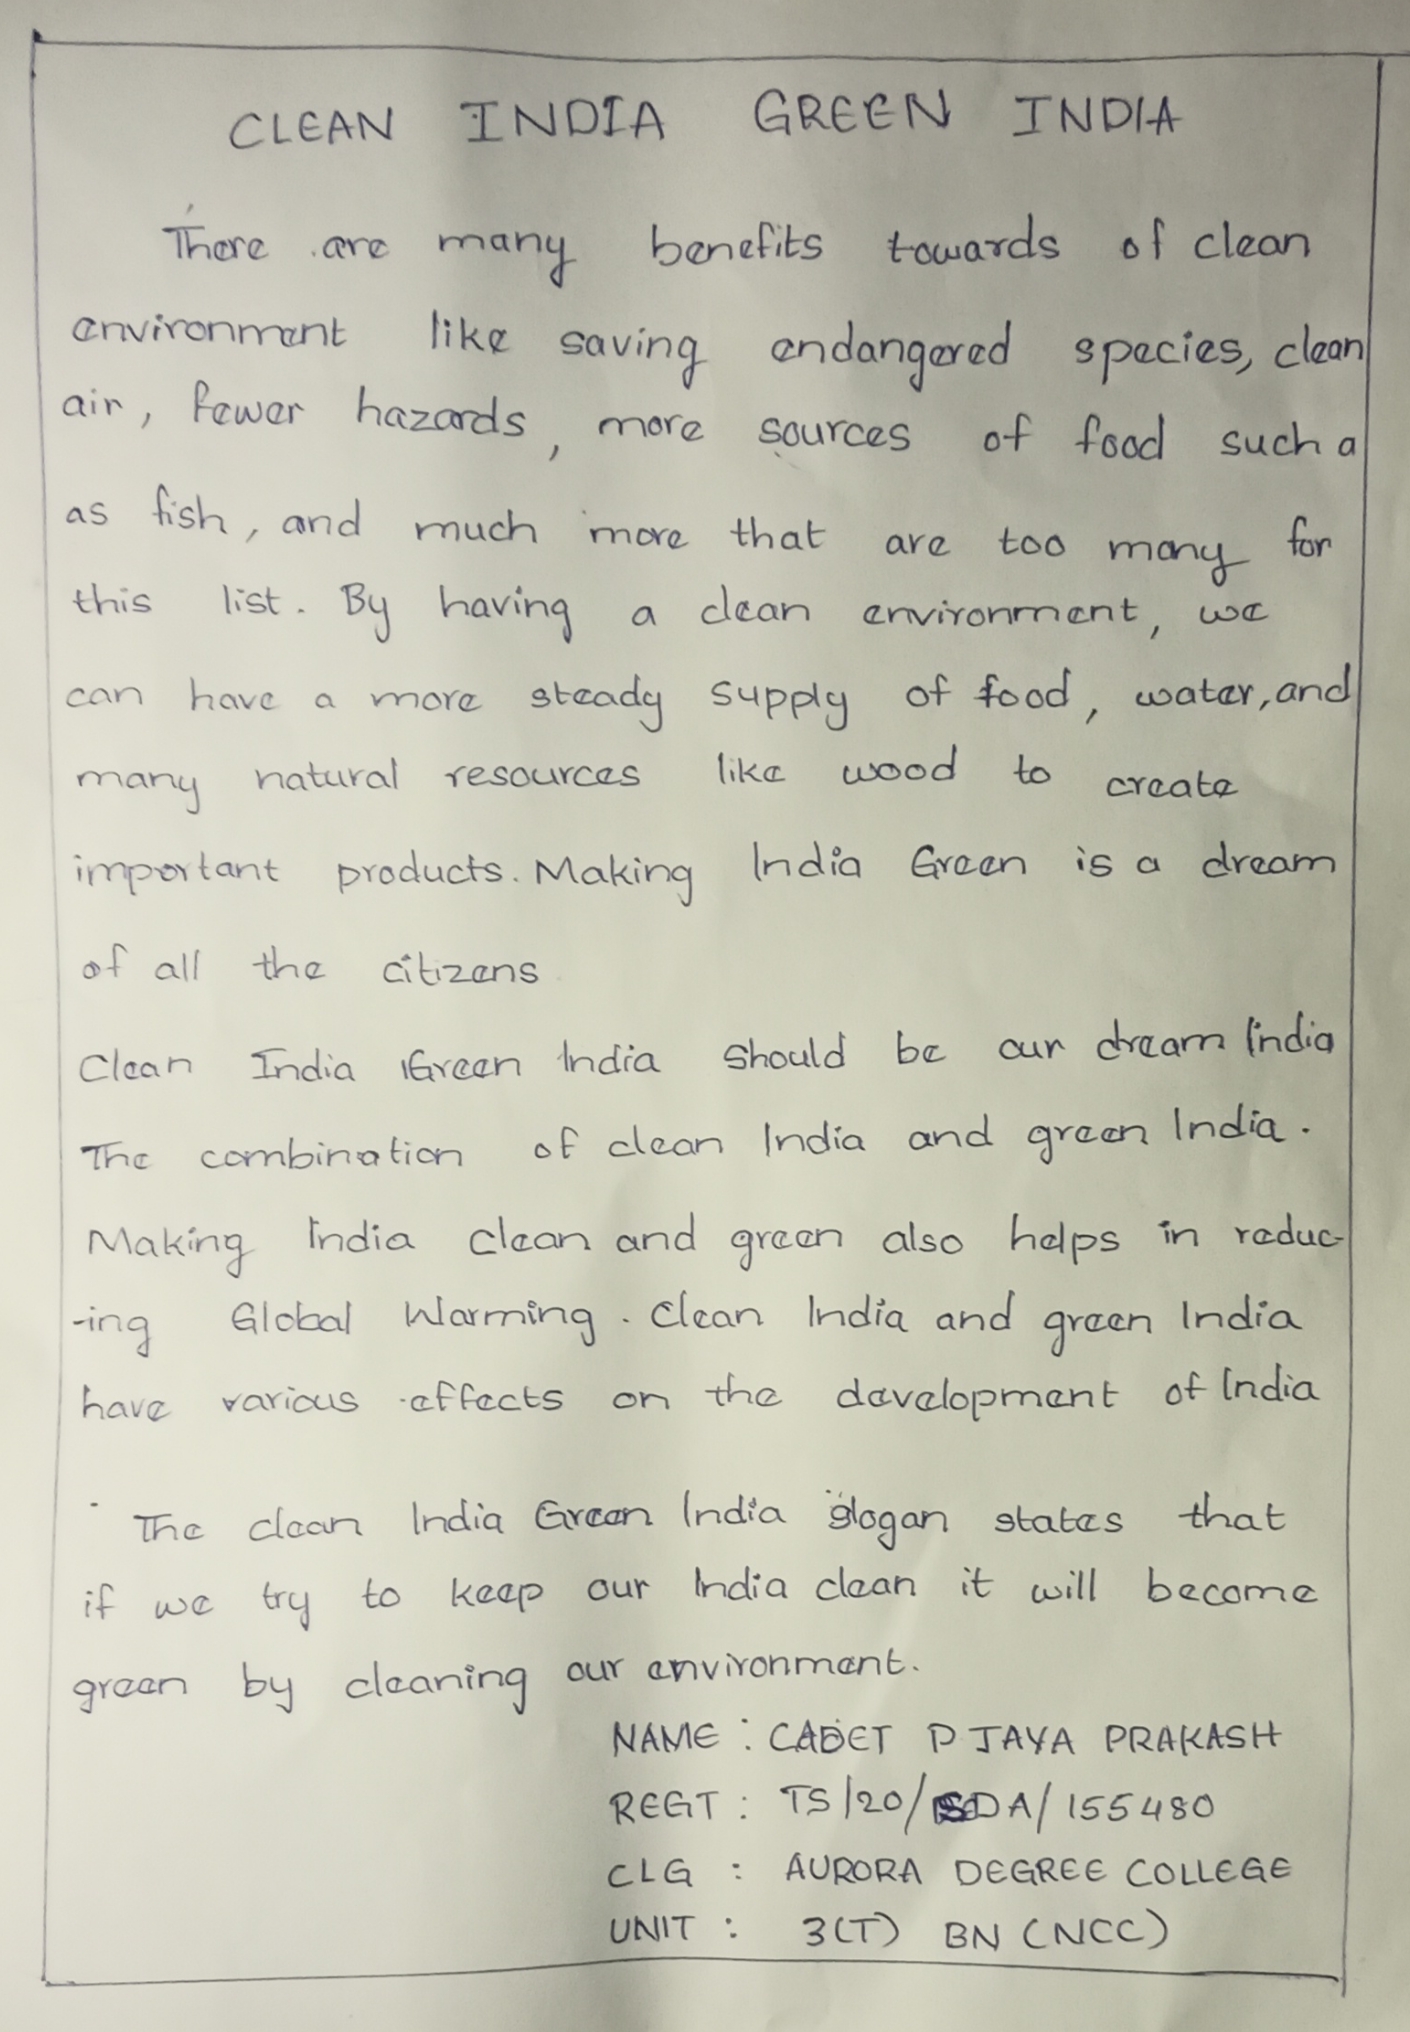 CLEAN INDIA GREEN INDIA
There are many benefits towards of clean
environment like saving endangered species, clean
air, fewer hazards, more sources of food such a
as fish, and much more that are too many for
this list. By having a clean environment, we
can have a more steady supply of food, water, and
many natural resources like wood to create
important products. Making India Green is a dream
of all the citizens
Clean India Green India should be our dream India
The combination of clean India and green India.
Making India clean and green also helps in reduc-
-ing Global Warming. Clean India and green India
have various effects on the development of India
The clean India Green India slogan states that
if we try to keep our India clean it will become
green by cleaning our environment.
NAME : CADET P JAYA PRAKASH
REGT : TS/20/SDA/155480
CLG : AURORA DEGREE COLLEGE
UNIT : 3(T) BN (NCC)